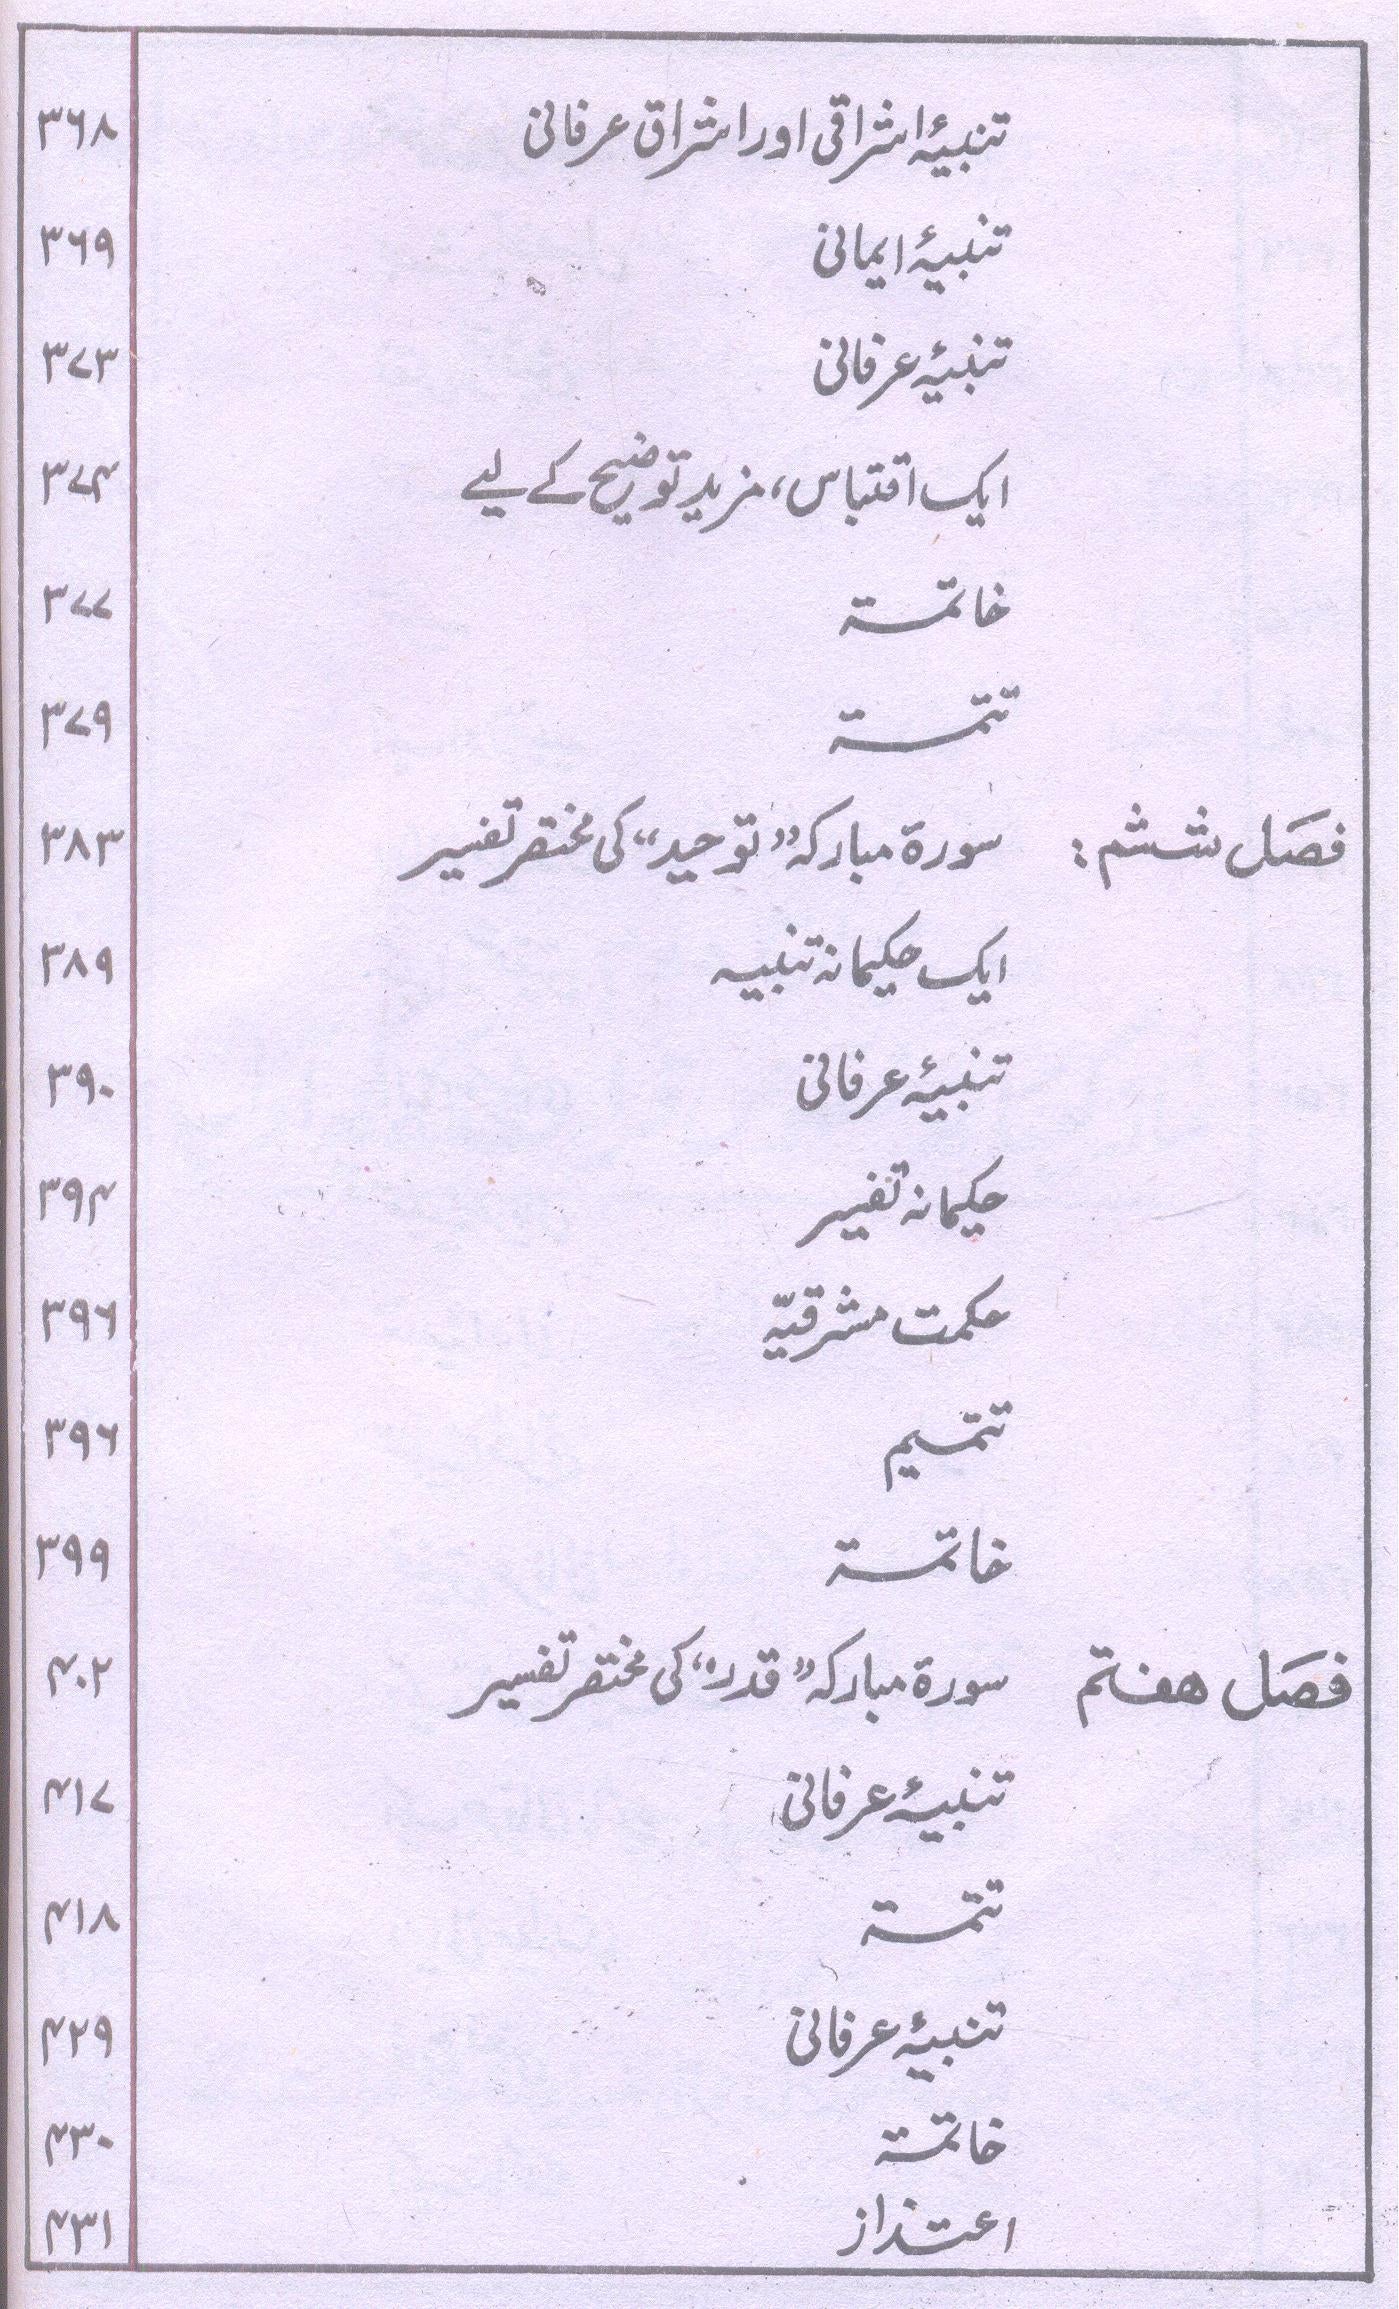 تنبیۂ اشراقی اور اشراق عرفانی ۳۶۸
تنبیۂ ایمانی ۳۶۹
تنبیۂ عرفانی ۳۷۳
ایک اقتباس، مزید توضیح کے لیے ۳۷۴
خاتمۃ ۳۷۷
تتمۃ ۳۷۹
فصل ششم: سورۃ مبارکہ “توحید” کی مختصر تفسیر ۳۸۳
ایک حکیمانہ تنبیہ ۳۸۹
تنبیۂ عرفانی ۳۹۰
حکیمانہ تفسیر ۳۹۴
حکمت مشرقیّہ ۳۹۶
تتمیم ۳۹۶
خاتمۃ ۳۹۹
فصل ھفتم سورۃ مبارکہ “قدر” کی مختصر تفسیر ۴۰۲
تنبیۂ عرفانی ۴۱۷
تتمۃ ۴۱۸
تنبیۂ عرفانی ۴۲۹
خاتمۃ ۴۳۰
اعتذاز ۴۳۱